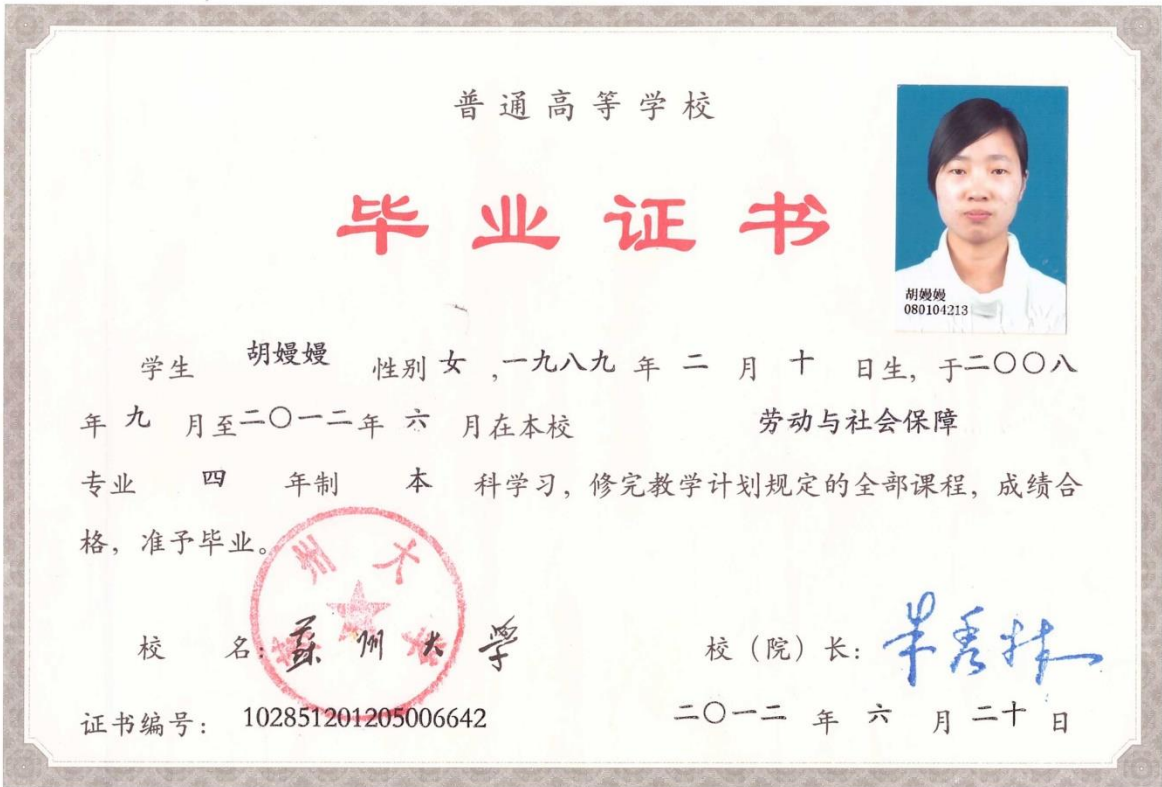 普通高等学校
毕业证书
胡嫚嫚
080104213
学生 胡嫚嫚 性别 女 ,一九八九 年 二 月 十 日生, 于二〇〇八
年 九 月至二〇一二年 六 月在本校 劳动与社会保障
专业 四 年制 本 科学习, 修完教学计划规定的全部课程, 成绩合
格, 准予毕业。
州大
校 名: 苏州大学 校（院）长: 朱秀林
证书编号: 102851201205006642 二〇一二 年 六 月 二十 日